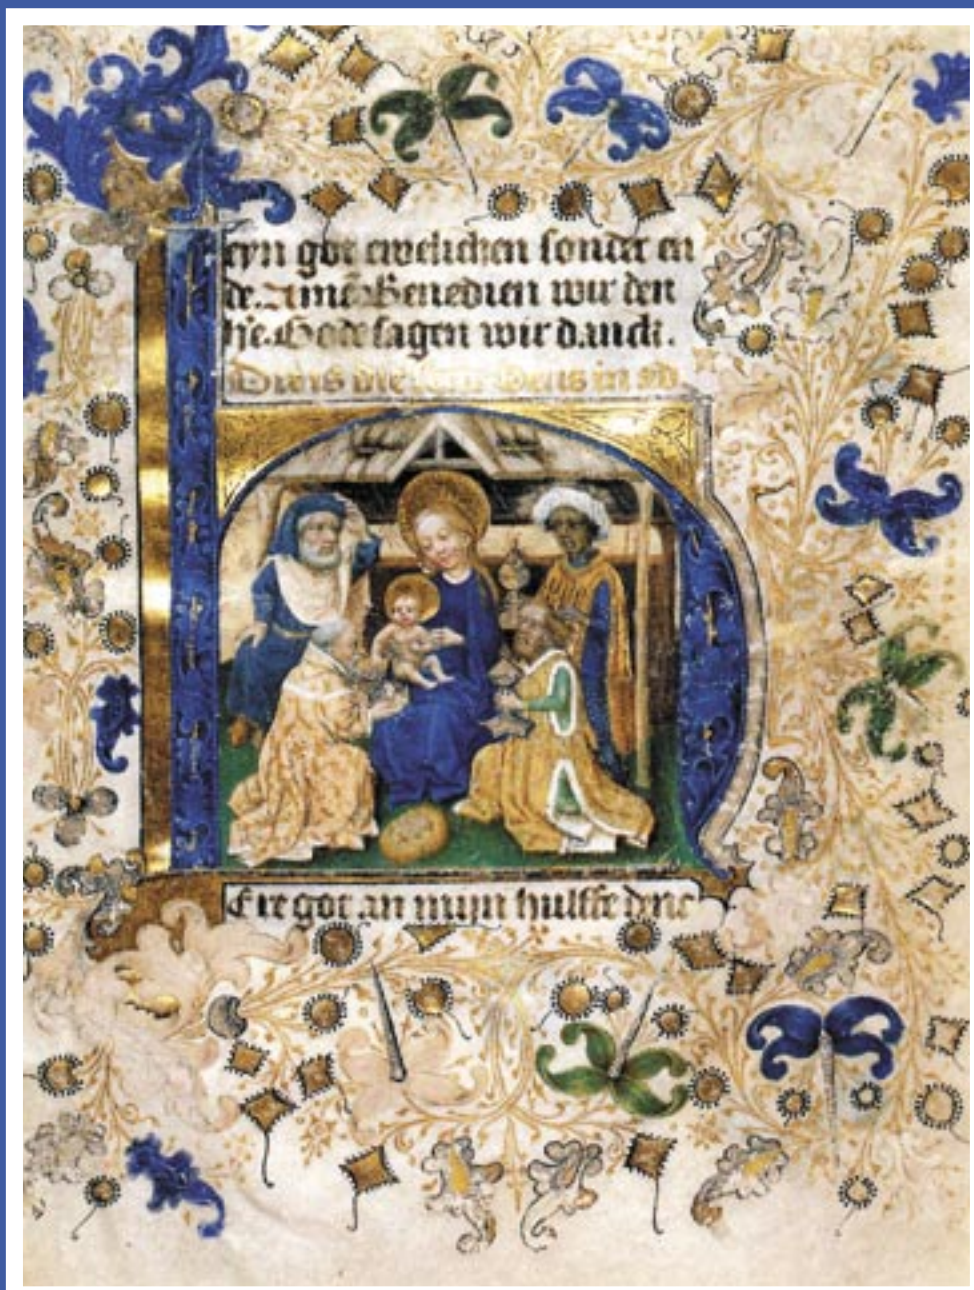 eyn got ewelichen sonder en
de. Amē Benedien wir den
h̄e. Gode sagen wir danck.
Dit is die
Ere got an mijn hulffe